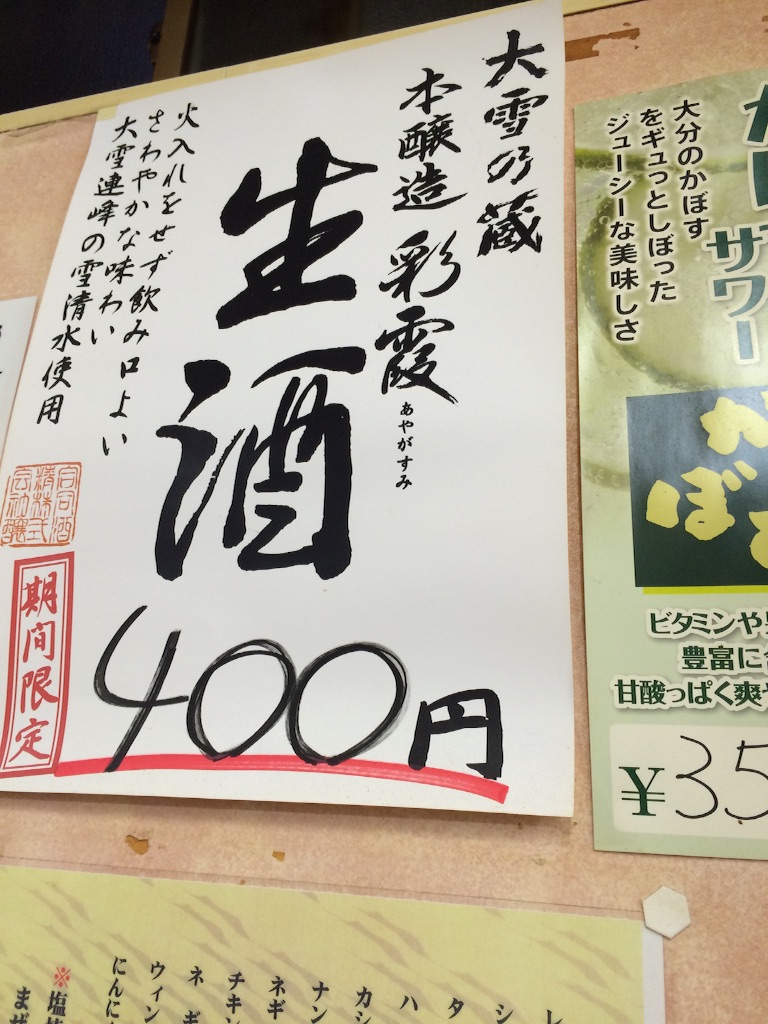 大雪乃蔵
本醸造 彩霞
あやがすみ
生酒
火入れをせず飲み口よい
さわやかな味わい
大雪連峰の雪清水使用
合同酒
精株式
会社醸
期間限定
400円
大分のかぼす
をギュっとしぼった
ジューシーな美味しさ
サワー
ビタミンや
豊富に
甘酸っぱく爽
¥35
レ
シ
タ
ハ
カシ
ナン
ネギ
チキン
ネギ
ウィン
にんに
※塩
まぜ